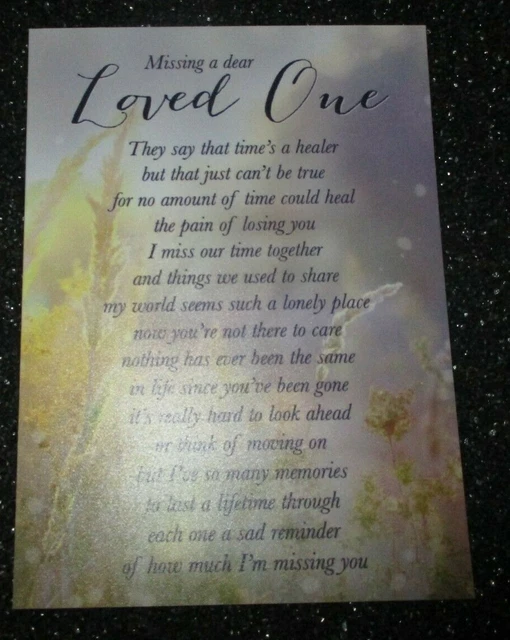 Missing a dear
Loved One
They say that time's a healer
but that just can't be true
for no amount of time could heal
the pain of losing you
I miss our time together
and things we used to share
my world seems such a lonely place
now you're not there to care
nothing has ever been the same
in life since you've been gone
it's really hard to look ahead
or think of moving on
but I've so many memories
to last a lifetime through
each one a sad reminder
of how much I'm missing you